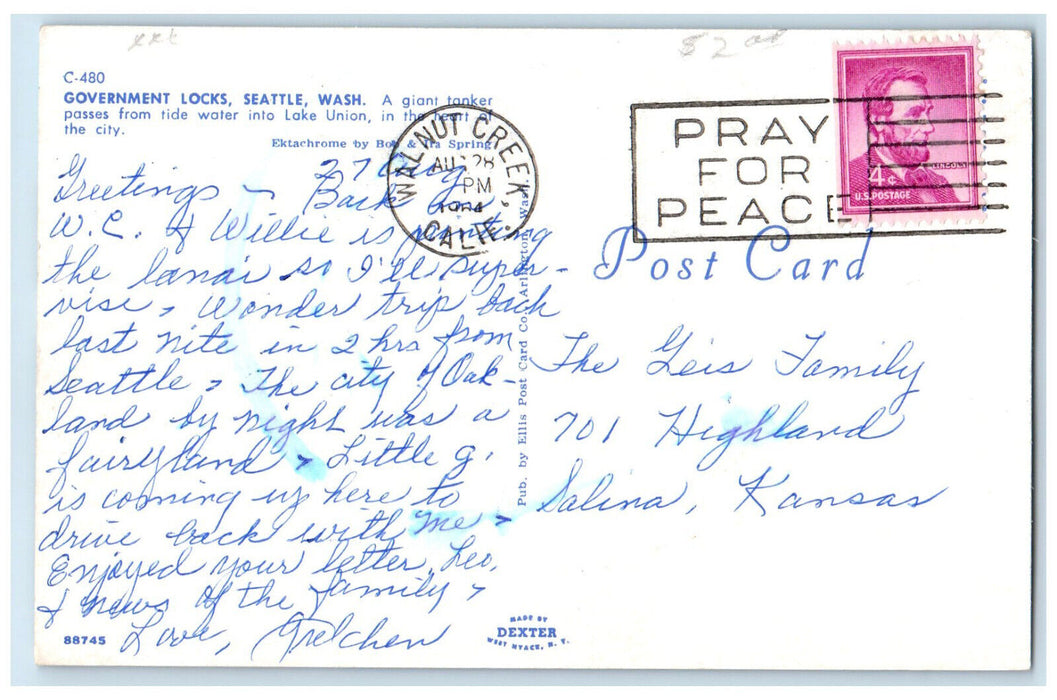 $2.00
C-480
GOVERNMENT LOCKS, SEATTLE, WASH. A giant tanker
passes from tide water into Lake Union, in the heart of
the city.
Ektachrome by Bob & Ira Spring
27 Aug
Greetings ~ Back in
W.C. & Willie is painting
the lanai so I'll super-
vise. Wonder trip back
last nite in 2 hrs from
Seattle. The city of Oak-
land by night was a
fairyland. Little g.
is coming up here to
drive back with me.
Enjoyed your letter, Leo,
& news of the family.
Love, Gretchen
88745
WALNUT CREEK, CALIF.
AUG 28
PM
PRAY
FOR
PEACE
LINCOLN
4c
U.S. POSTAGE
Post Card
Pub. by Ellis Post Card Co., Arlington, Wash.
The Geis Family
701 Highland
Salina, Kansas
MADE BY
DEXTER
WEST NYACK, N. Y.